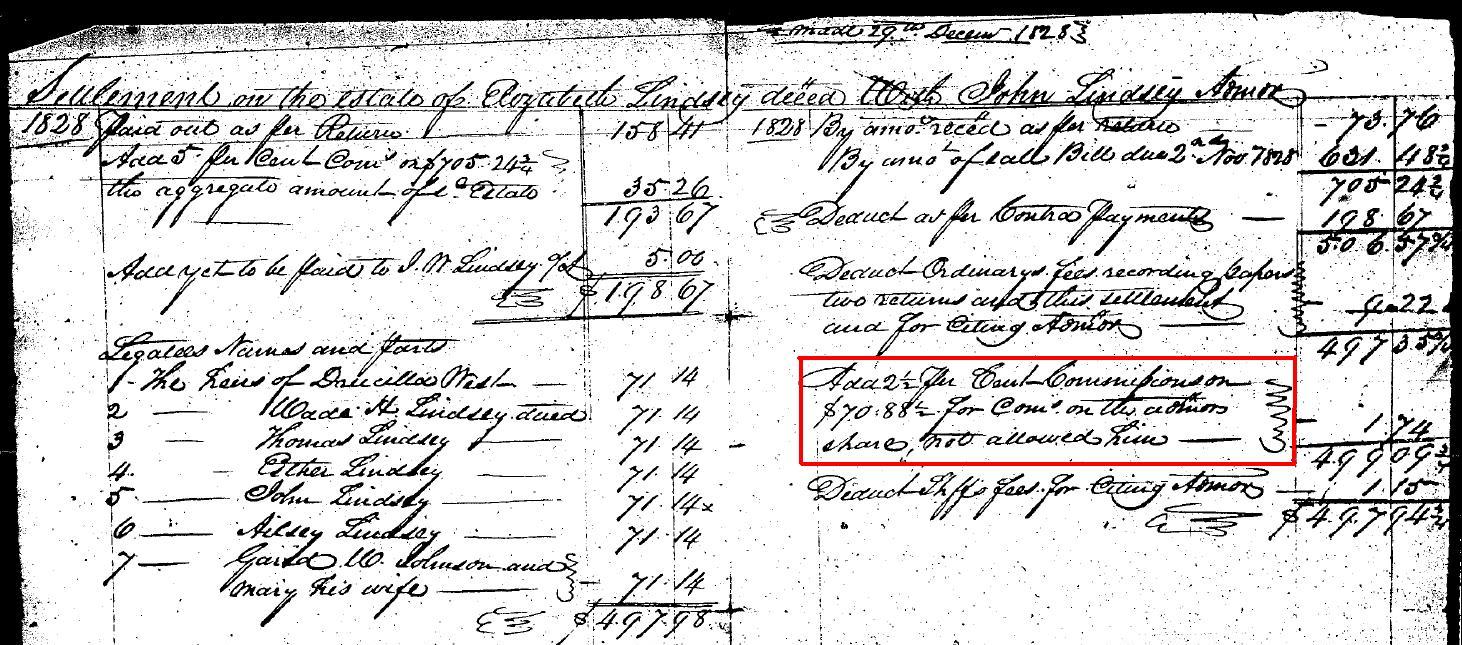 made 29th Decem 1828
Settlement on the estate of Elizabeth Lindsey deced With John Lindsey Admor
1828 Paid out as per Return 158 41
Add 5 per Cent Coms on $705.24 3/4
the aggregate amount of sd Estate 35 26
193 67
Add yet to be paid to J. W. Lindsey 5.00
$198 67
Legatees Names and parts
1 - The heirs of Drucilla West — 71.14
2 — Wade H. Lindsey deced 71.14
3 — Thomas Lindsey — 71.14
4 - Esther Lindsey — 71.14
5 — John Lindsey — 71.14x
6 — Ailsey Lindsey — 71.14
7 — Garisd W. Johnson and
mary his wife — 71.14
$497.98
1828 By amot. reced as per return - 73.76
By amot of sale Bill due 2nd Nov 1828 631.48 3/4
705 24 3/4
Deduct as per Contra Payments — 198 67
506.57 3/4
Deduct Ordinarys fees recording papers
two returns and this settlement
and for Citing Admor — 9.22
497 35 3/4
Add 2 1/2 per Cent Commissions on
$70.88 1/2 for Coms on the admors
share, not allowed him — 1.74
499 09 3/4
Deduct Shffs fees for Citing Admor — 1.15
$497 94 3/4